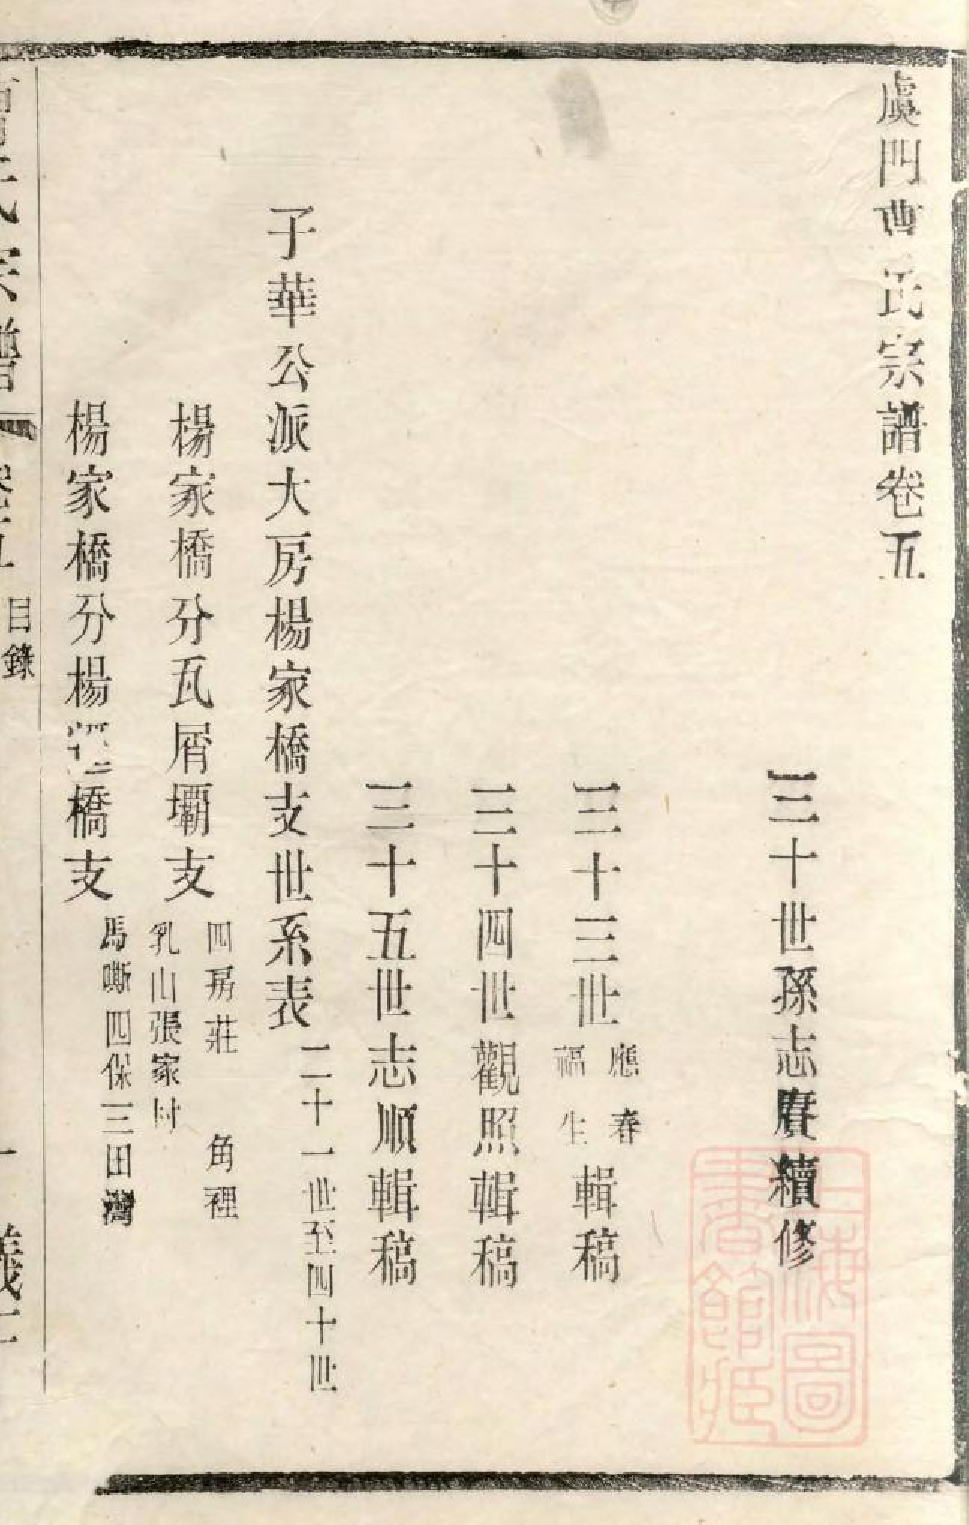 虞門曹氏宗譜卷五
三十世孫志賡續修
三十三世 應春 福生 輯稿
三十四世觀照輯稿
三十五世志順輯稿
子華公派大房楊家橋支世系表 二十一世至四十世
楊家橋分瓦屑壩支 四房莊 角裡 乳山張家村
楊家橋分楊 橋支 馬嘶四保三田灣
曹氏宗譜 卷五 目錄 一
上海圖書館藏